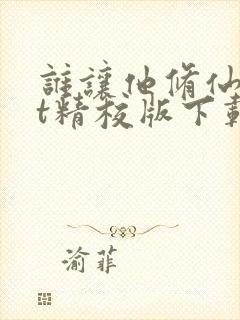 誰讓他修仙
t精校版下載
渝菲